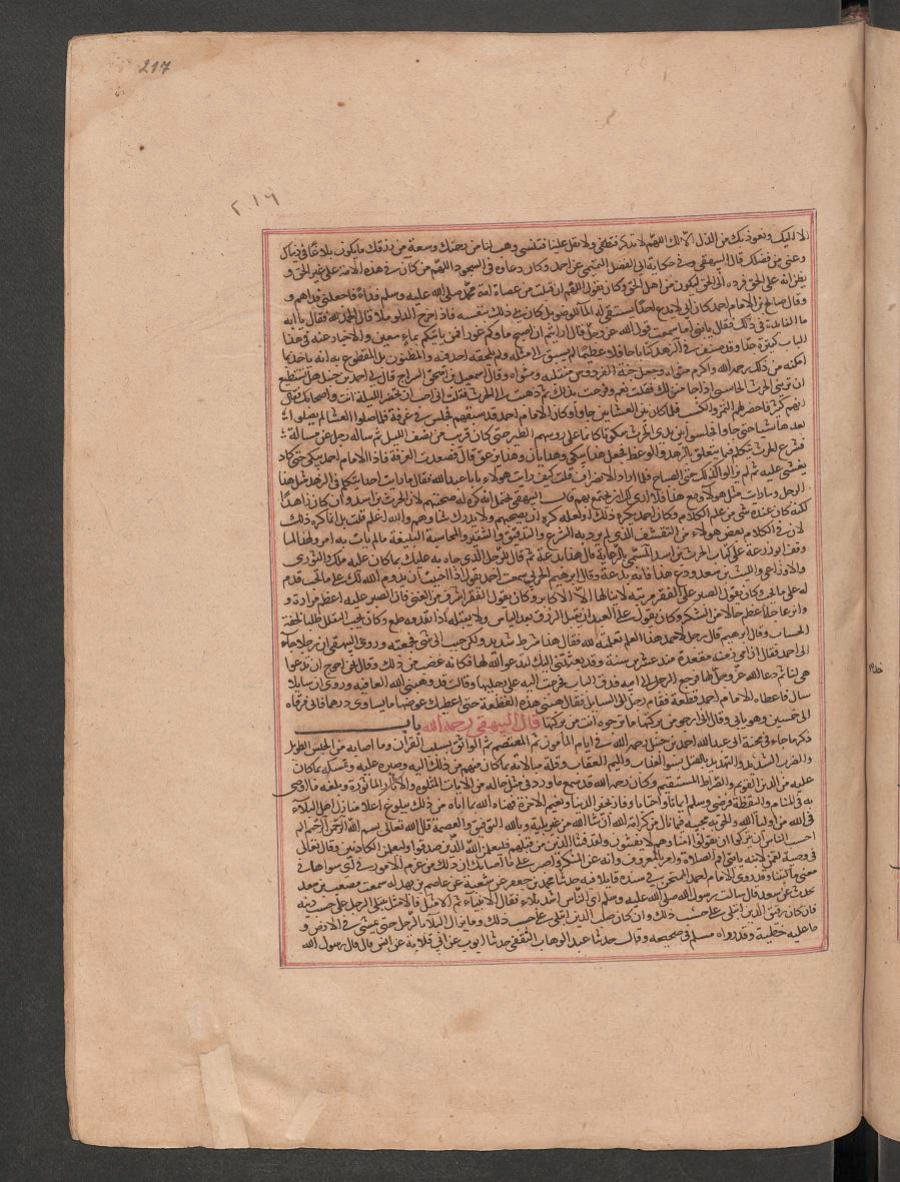 217
٢١٦
الا اليك ونعوذ بك من الذل الا لك اللهم لا تكثر فنطغى ولا تقل علينا فننسى وهب لنا من رحمتك وسعة من رزقك ما يكون بلاغا في دنياك
وغنى من فضلك قال البيهقي وفي حكاية ابي الفضل التميمي عن احمد وكان دعاوه في السجود اللهم من كان في هذه الامة على غير الحق و
يظن انه على الحق فرده الى الحق ليكون من اهل الحق وكان يقول اللهم ان قبلت من عصاة امة محمد صلى الله عليه وسلم فداء فاجعلني فداهم و
وقال صالح بن الامام احمد كان ابي لا يدع احدا يستسقي له الماء للوضوء بل كان يلي ذلك بنفسه فاذا خرج الدلو ملا قال الحمد لله فقال يا ابه
ما الفايدة في ذلك فقال يا بني اما سمعت قول الله عز وجل قل ارايتم ان اصبح ماوكم غورا فمن ياتيكم بماء معين والاخبار عنه في هذا
الباب كثيرة جدا وقد صنف في الزهد كتابا حافلا عظيما لم يسبق الى مثله ولم يلحقه احد فيه والمظنون بل المقطوع به انه ياخذ بما
امكنه من ذلك رحمه الله واكرم مثواه وجعل جنة الفردوس منقلبه ومثواه وقال اسمعيل بن اسحق السراج قال لي احمد بن حنبل هل تستطيع
ان تريني الحرث المحاسبي اذا جا منزلك فقلت نعم وفرحت بذلك ثم ذهبت الى الحرث فقلت اني احب ان تحضر الليلة انت واصحابك فقال
انهم كثير فاحضر لهم التمر والكسب فلما كان بين العشاين جاوا وكان الامام احمد قد سبقهم فجلس في غرفة فلما صلوا العشا لم يصلوا
بعدها شيا حتى جاوا فجلسوا بين يدي الحرث سكوتا كانما على روسهم الطير حتى كان قريب من نصف الليل ثم ساله رجل عن مسالة
فشرع الحرث يتكلم فيما يتعلق بالزهد والوعظ فجعل هذا يبكي وهذا يان وهذا يزعق قال فصعدت الغرفة فاذا الامام احمد يبكي حتى كاد
يغشى عليه ثم لم يزالوا كذلك حتى الصباح فلما اراد الانصراف قلت كيف رايت هولاء يابا عبد الله فقال ما رايت احدا يتكلم في الزهد مثل هذا
الرجل وما رايت مثل هولاء ومع هذا فلا ارى لك ان تجتمع بهم قال البيهقي يحتمل انه كره له صحبتهم لان الحرث بن اسد وان كان زاهدا
لكنه كان عنده شي من علم الكلام وكان احمد يكره ذلك او لعله كره ان يصحبهم ولا يدرك شاوهم والله اعلم قلت بل انما كره ذلك
لان في الكلام بعض هولاء من التقشف الذي لم يرد به الشرع والتدقيق والتنقير والمحاسبة البليغة ما لم يات به امر ولهذا لما
وقف ابو زرعة على كتاب الحرث بن اسد المسمى بالرعاية قال هذا بدعة ثم قال للرجل الذي جاه به عليك بما كان عليه ملك والثوري
والاوزاعي والليث بن سعد ودع هذا فانه بدعة وقال ابرهيم الحربي سمعت احمد يقول اذا احببت ان يدوم الله لك على ما تحب فدم
له على ما يحب وكان يقول الصبر على الفقر مرتبة لا ينالها الا الاكابر وكان يقول الفقر اشرف من الغنى فان الصبر عليه اعظم مرارة و
وانزعاجه اعظم حالا من الشكر وكان يقول على العبد ان يقبل الرزق بعد الياس ولا يقبله اذا تقدمه طمع وكان يحب التقلل طلبا لخفة
الحساب وقال ابرهيم قال رجل لاحمد هذا العلم تعلمته لله فقال هذا شرط شديد ولكن حبب الى شي فجمعته وروى البيهقي ان رجلا جاء
الى احمد فقال ان امي زمنة مقعدة منذ عشرين سنة وقد بعثتني اليك لتدعو الله لها فكانه غضب من ذلك وقال نحن احوج ان تدعوا
هي لنا ثم دعا الله عز وجل لها فرجع الرجل الى امه فدق الباب فخرجت اليه على رجليها وقالت قد وهبني الله العافيه وروي ان سايلا
سال فاعطاه الامام احمد قطعة فقام رجل الى السايل فقال هبني هذه القطعة حتى اعطيك عوضها ما يساوي درهما فابى فرقاه
الى خمسين وهو يابى وقال اني ارجو من بركتها ما ترجوه انت من بركتها قال البيهقي رحمه الله باب
ذكر ما جاء في محنة ابي عبد الله احمد بن حنبل رحمه الله في ايام المامون ثم المعتصم ثم الواثق بسبب القران وما اصابه من الحبس الطويل
والضرب الشديد والتهديد بالقتل بسوء العذاب واليم العقاب وقلة مبالاته بما كان منهم من ذلك اليه وصبره عليه وتمسكه بما كان
عليه من الدين القويم والصراط المستقيم وكان رحمه الله قد سمع ما ورد في مثل حاله من الايات المتلوة والاثار الماثورة وبلغه ما اوصى
به في المنام واليقظة فرضي وسلم ايمانا واحتسابا وفاز بخير الدنيا ونعيم الاخرة فهناه الله بما اتاه من ذلك ببلوغ اعلا منازل اهل البلاء
في الله من اولياء الله والحق به محبيه فيما نال من كرامة الله ان شا الله من غير بلية وبالله التوفيق والعصمة قال الله تعالى بسم الله الرحمن الرحيم الم
احسب الناس ان يتركوا ان يقولوا امنا وهم لا يفتنون ولقد فتنا الذين من قبلهم فليعلمن الله الذين صدقوا وليعلمن الكاذبين وقال تعالى
في وصية لقمن لابنه يا بني اقم الصلاة وامر بالمعروف وانه عن المنكر واصبر على ما اصابك ان ذلك من عزم الامور في اي سواها في
معنى ما كتبنا وقد روى الامام احمد الممتحن في مسنده قايلا فيه حدثنا محمد بن جعفر عن شعبة عن عاصم بن بهدلة سمعت مصعب بن سعد
يحدث عن سعد قال سالت رسول الله صلى الله عليه وسلم اي الناس اشد بلاء فقال الانبياء ثم الامثل فالامثل يبتلى الرجل على حسب دينه
فان كان رقيق الدين ابتلي على حسب ذلك وان كان صلب الدين ابتلي على حسب ذلك وما يزال البلاء بالرجل حتى يمشي في الارض و
ما عليه خطيئة وقد رواه مسلم في صحيحه وقال حدثنا عبد الوهاب الثقفي حدثنا ايوب عن ابي قلابة عن انس قال قال رسول الله